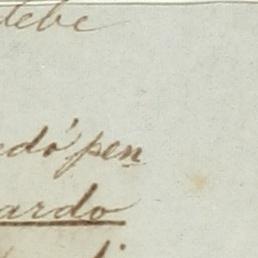 debe
edó pen
ardo